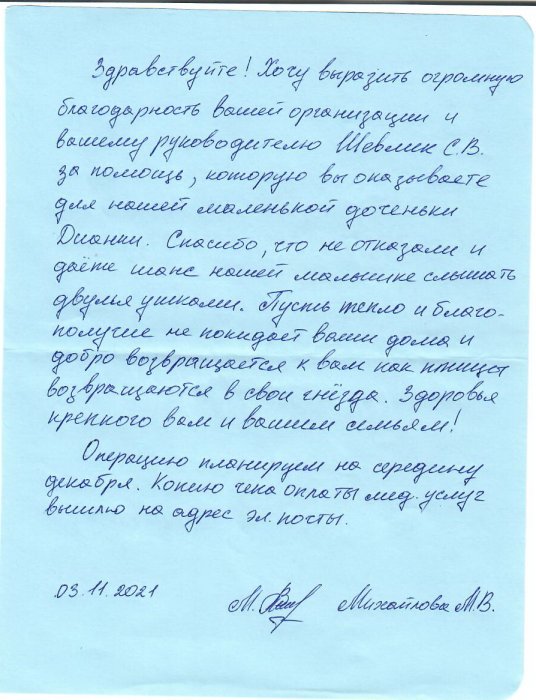 Здравствуйте! Хочу выразить огромную
благодарность вашей организации и
вашему руководителю Шевлик С.В.
за помощь, которую вы оказываете
для нашей маленькой доченьки
Дианки. Спасибо, что не отказали и
даёте шанс нашей малышке слышать
двумя ушками. Пусть тепло и благо-
получие не покидает ваши дома и
добро возвращается к вам как птицы
возвращаются в свои гнёзда. Здоровья
крепкого вам и вашим семьям!
Операцию планируем на середину
декабря. Копию чека оплаты мед. услуг
вышлю на адрес эл. почты.
03.11.2021 М. Михайлова М.В.